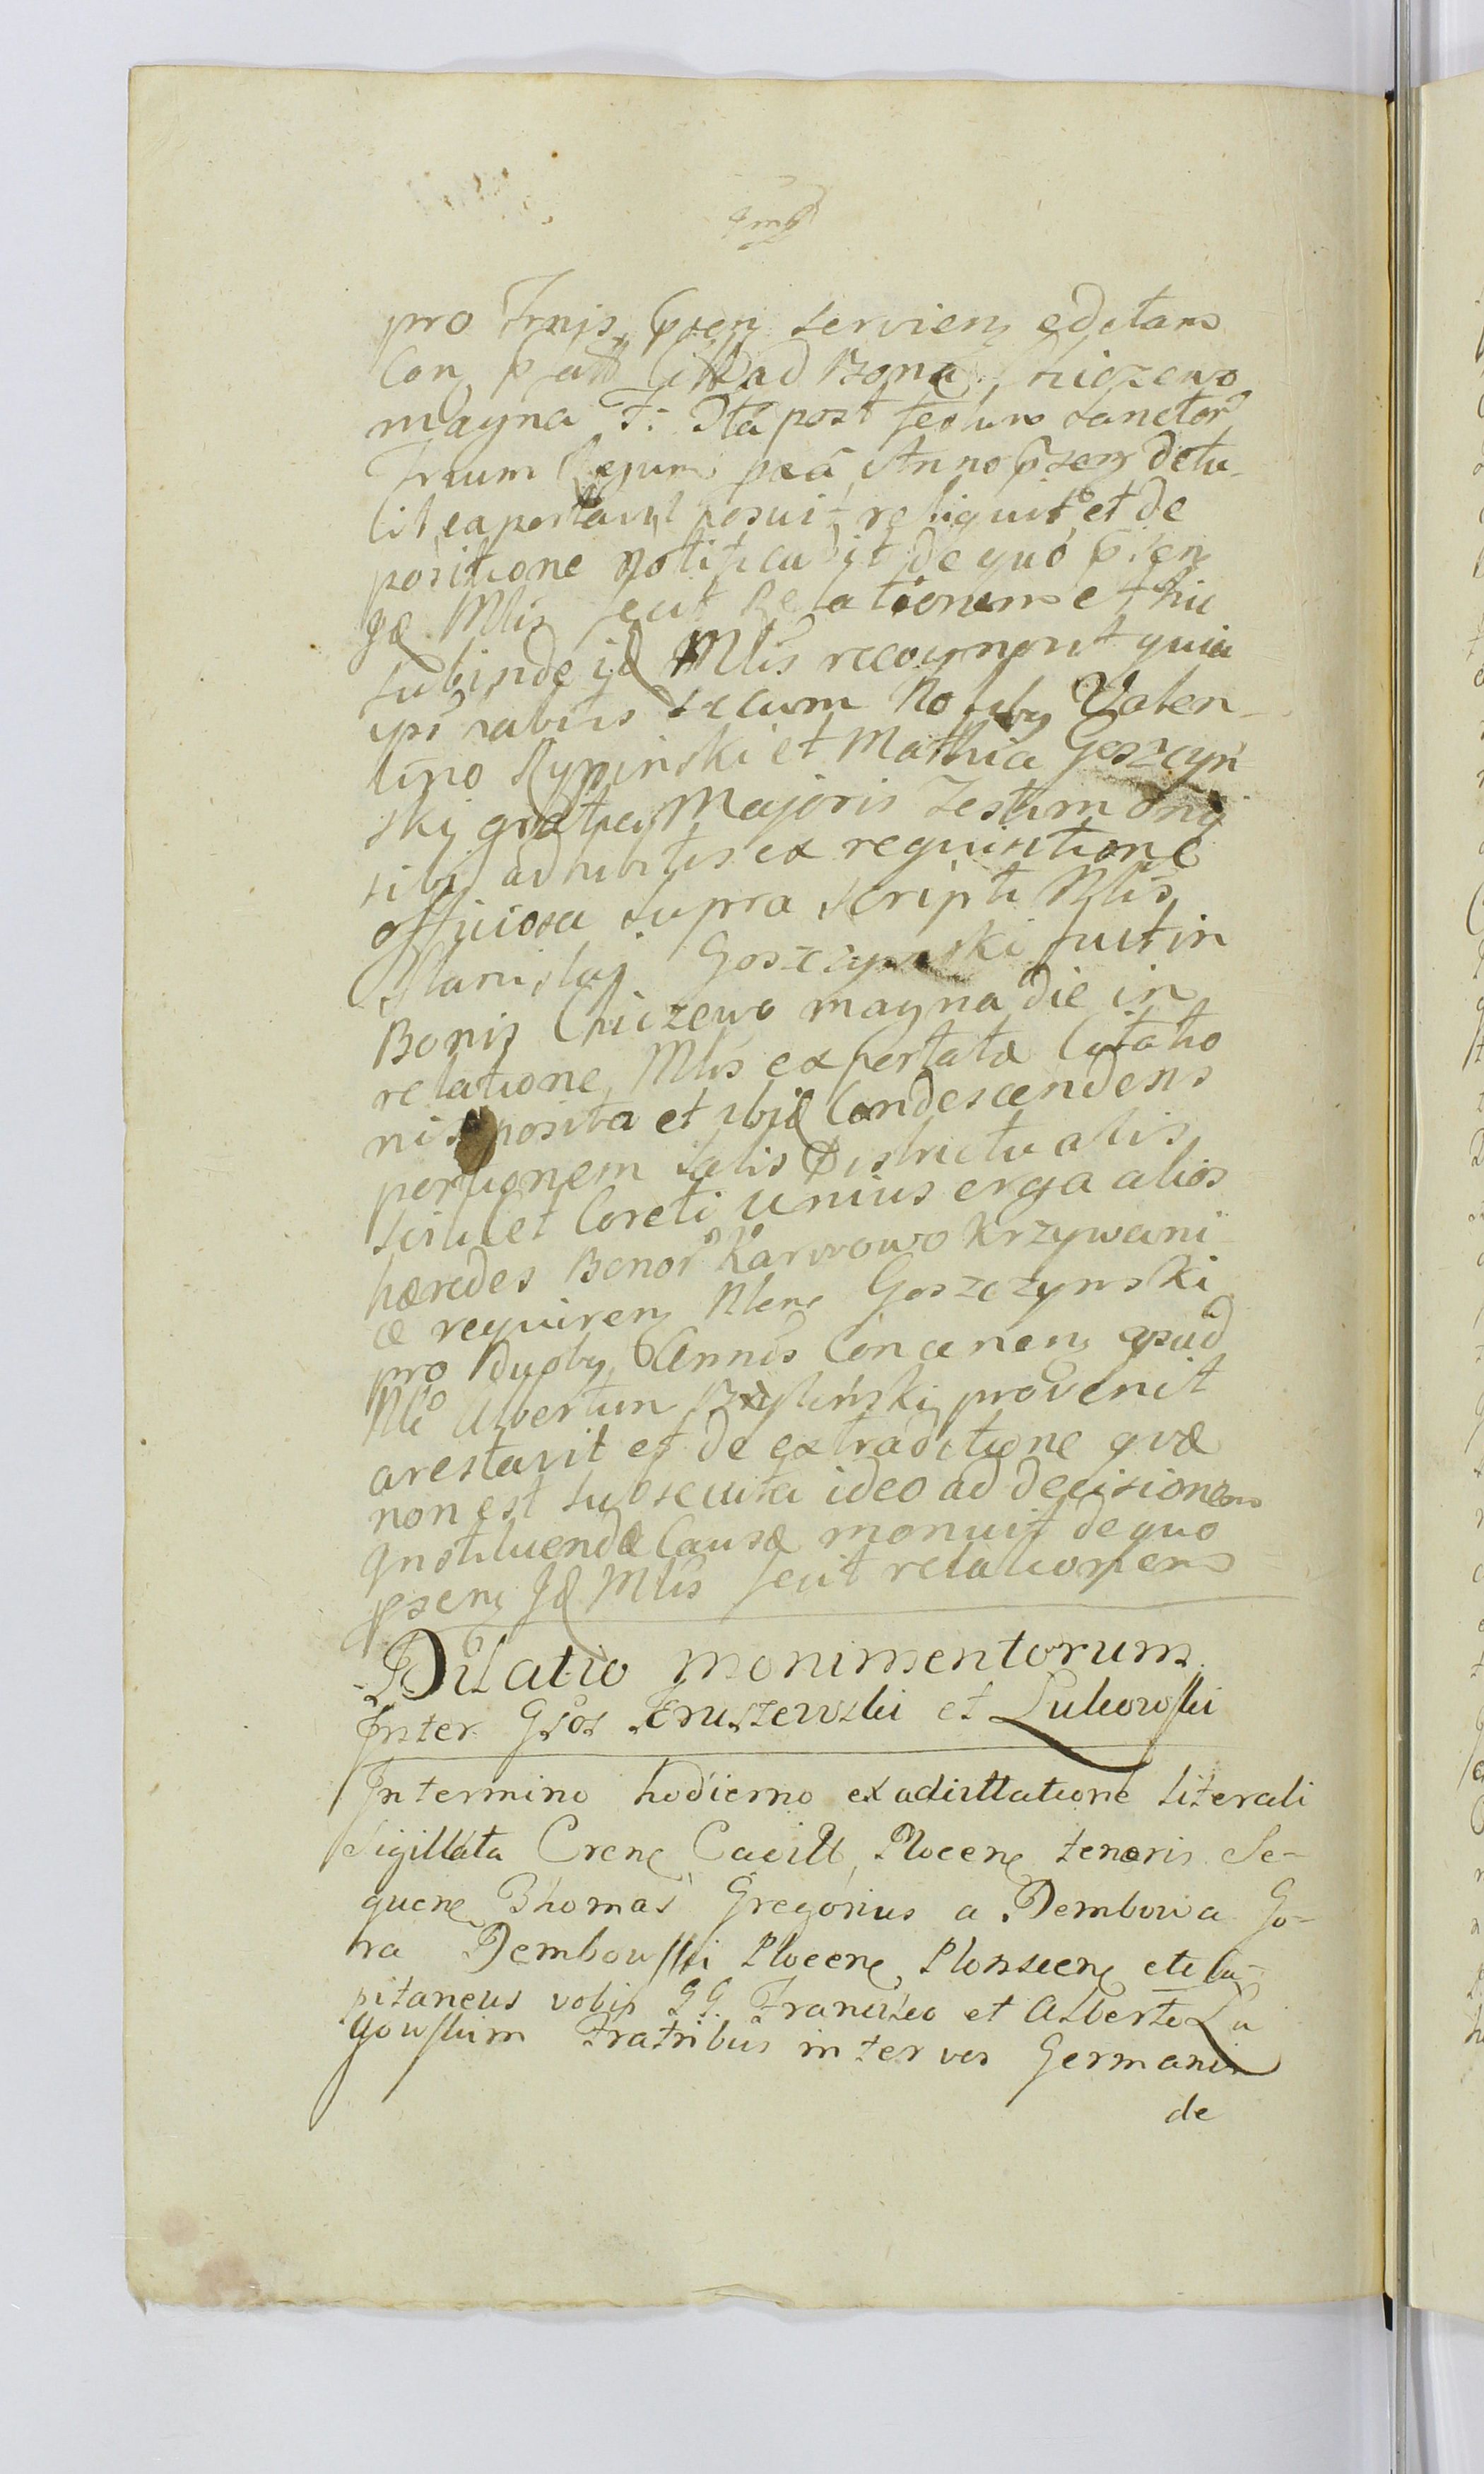 pro Trnjs, psen servien editam
Con p Citt ad Bona Chiczewo
magna F: 5ta post festum Sanctor
Trium Regum pxa Anno psen detu-
lit exportavit posuit reliquit et de
positione notificavit de quo psen
Mlis fecit Relationem et hic
subinde jd Mlis recognovit quia
ipse habitis secum Nobilby Valen-
tino Rypinski et Mathia Goszczyn
skj gratia Majoris Testimonij
sibj adhibitis ex requisitione
officiosa supra scripti Mlis
Stanislaj Goszczynski fuit in
Bonis Chiczewo magna die in
relatione Mlis exportatæ Citatio
nis posita et ibid Condescendens
portionem salis Districtualis
scilicet Coreti unius erga alios
hæredes Bonor Karwowo Krzywani
æ requiren Nlem Goszczynski
pro duoby Annis Concernen apud
Nlo Albertum provenit
arestavit et de extraditione qvæ
non est subsecuta ideo ad decisionem
Instituendæ Causæ monuit de quo
psen Jd Mlis fecit relationem
Dilatio monimentorum
Inter Gsos Kruszewski et Lukowski
In termino hodierno ex adcittatione literali
Sigillata Crene Cavill Plocene tenoris Se-
quene Thomas Gregorius a Dembowa Go-
ra Dembowski Plocene, Plonscene etc Ca-
pitaneus vobis GG. Francisco et Alberto Lu
gowskim Fratribus inter vos Germanis
de